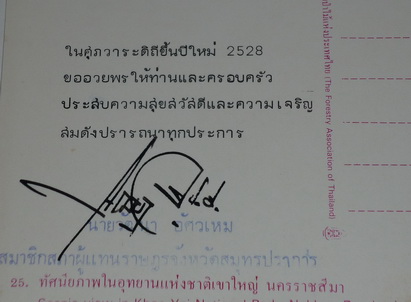 ในศุภวาระดิถีขึ้นปีใหม่ 2528
ขออวยพรให้ท่านและครอบครัว
ประสบความสุขสวัสดีและความเจริญ
สมดังปรารถนาทุกประการ
นายวัฒนา อัศวเหม
สมาชิกสภาผู้แทนราษฎรจังหวัดสมุทรปราการ
25. ทัศนียภาพในอุทยานแห่งชาติเขาใหญ่ นครราชสีมา
ป่าไม้แห่งประเทศไทย (The Forestry Association of Thailand)